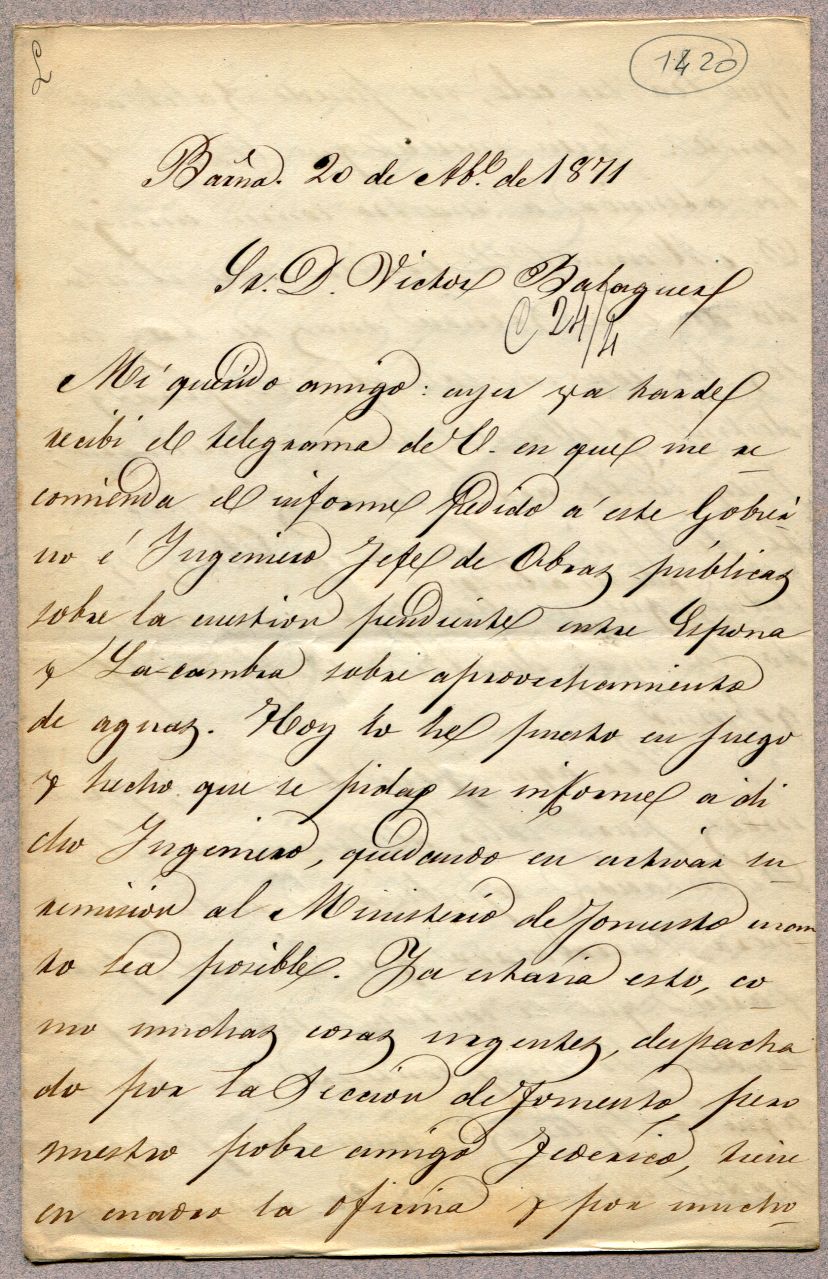 L
1420
Barña. 20 de Abl. de 1871
Sr. D. Victor Balaguer
C 24/4
Mi querido amigo: ayer ya tarde
recibi el telegrama de V. en que me re-
comienda el informe pedido á este Gobier-
no é Ingeniero Jefe de Obras públicas
sobre la cuestion pendiente entre Espona
y La-cambra sobre aprovechamiento
de aguas. Hoy lo he puesto en juego
y hecho que se pida su informe a di
cho Ingeniero, quedando en activar su
remision al Ministerio de Fomento cuan-
to sea posible. Ya estaria esto, co-
mo muchas cosas urgentes, despacha-
do por la Seccion de Fomento, pero
nuestro pobre amigo Federico, tiene
en cuadro la oficina y por mucho-